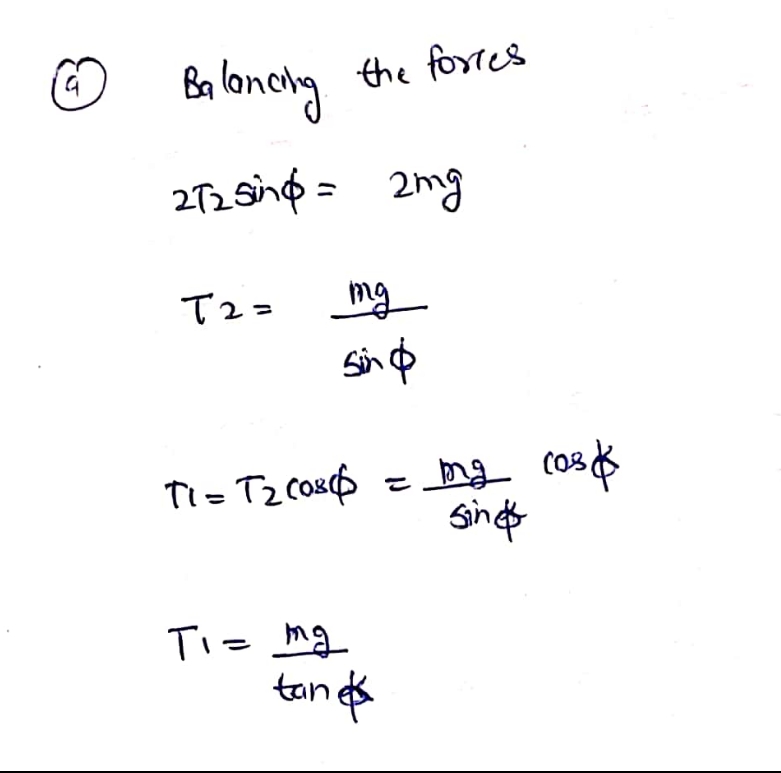 (a) Balancing the forces
2T2 sinϕ = 2mg
T2 = mg
sinϕ
T1 = T2 cosϕ = mg cosϕ
sinϕ
T1 = mg
tanϕ